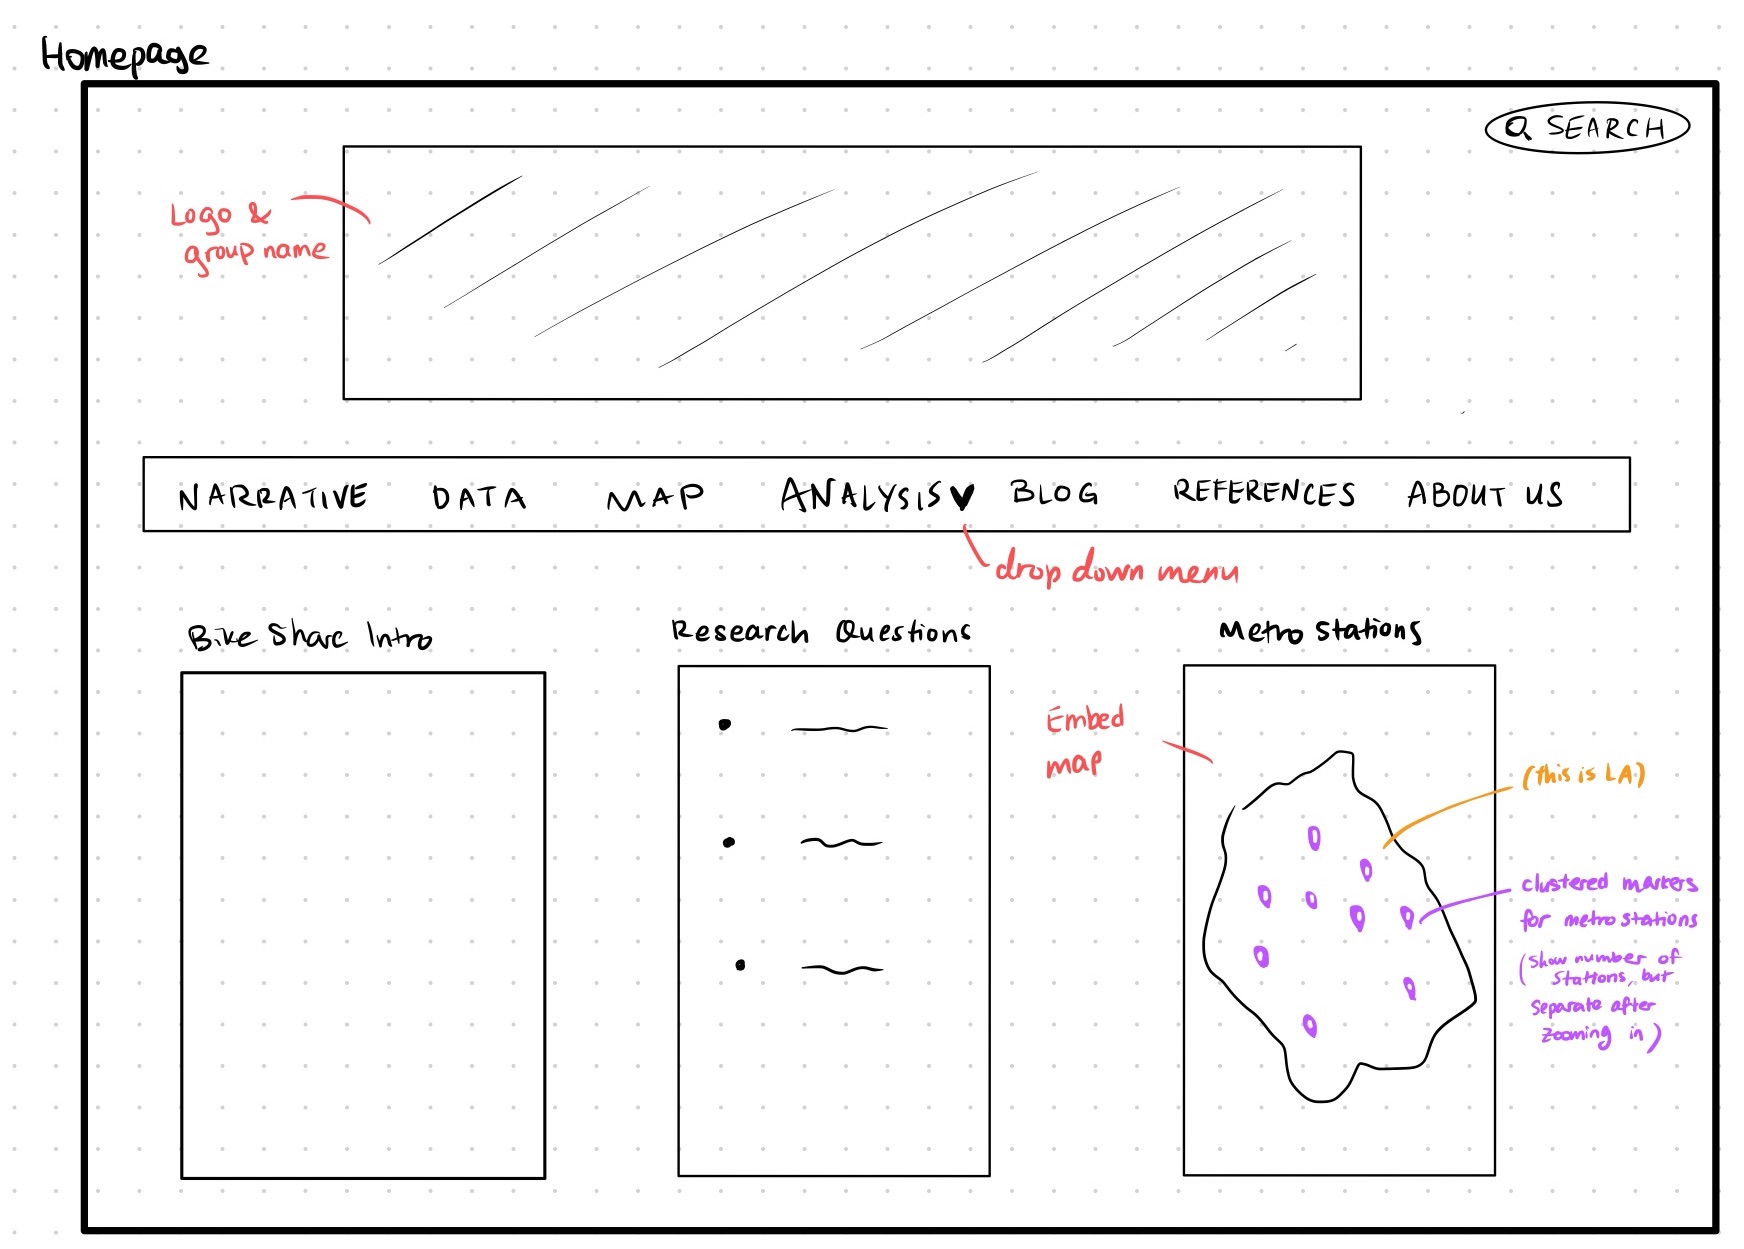 Homepage
SEARCH
Logo &
group name
NARRATIVE DATA MAP ANALYSIS BLOG REFERENCES ABOUT US
drop down menu
Bike Share Intro
Research Questions
Metro Stations
Embed
map
(this is LA)
clustered markers
for metro stations
(show number of
stations, but
separate after
zooming in)